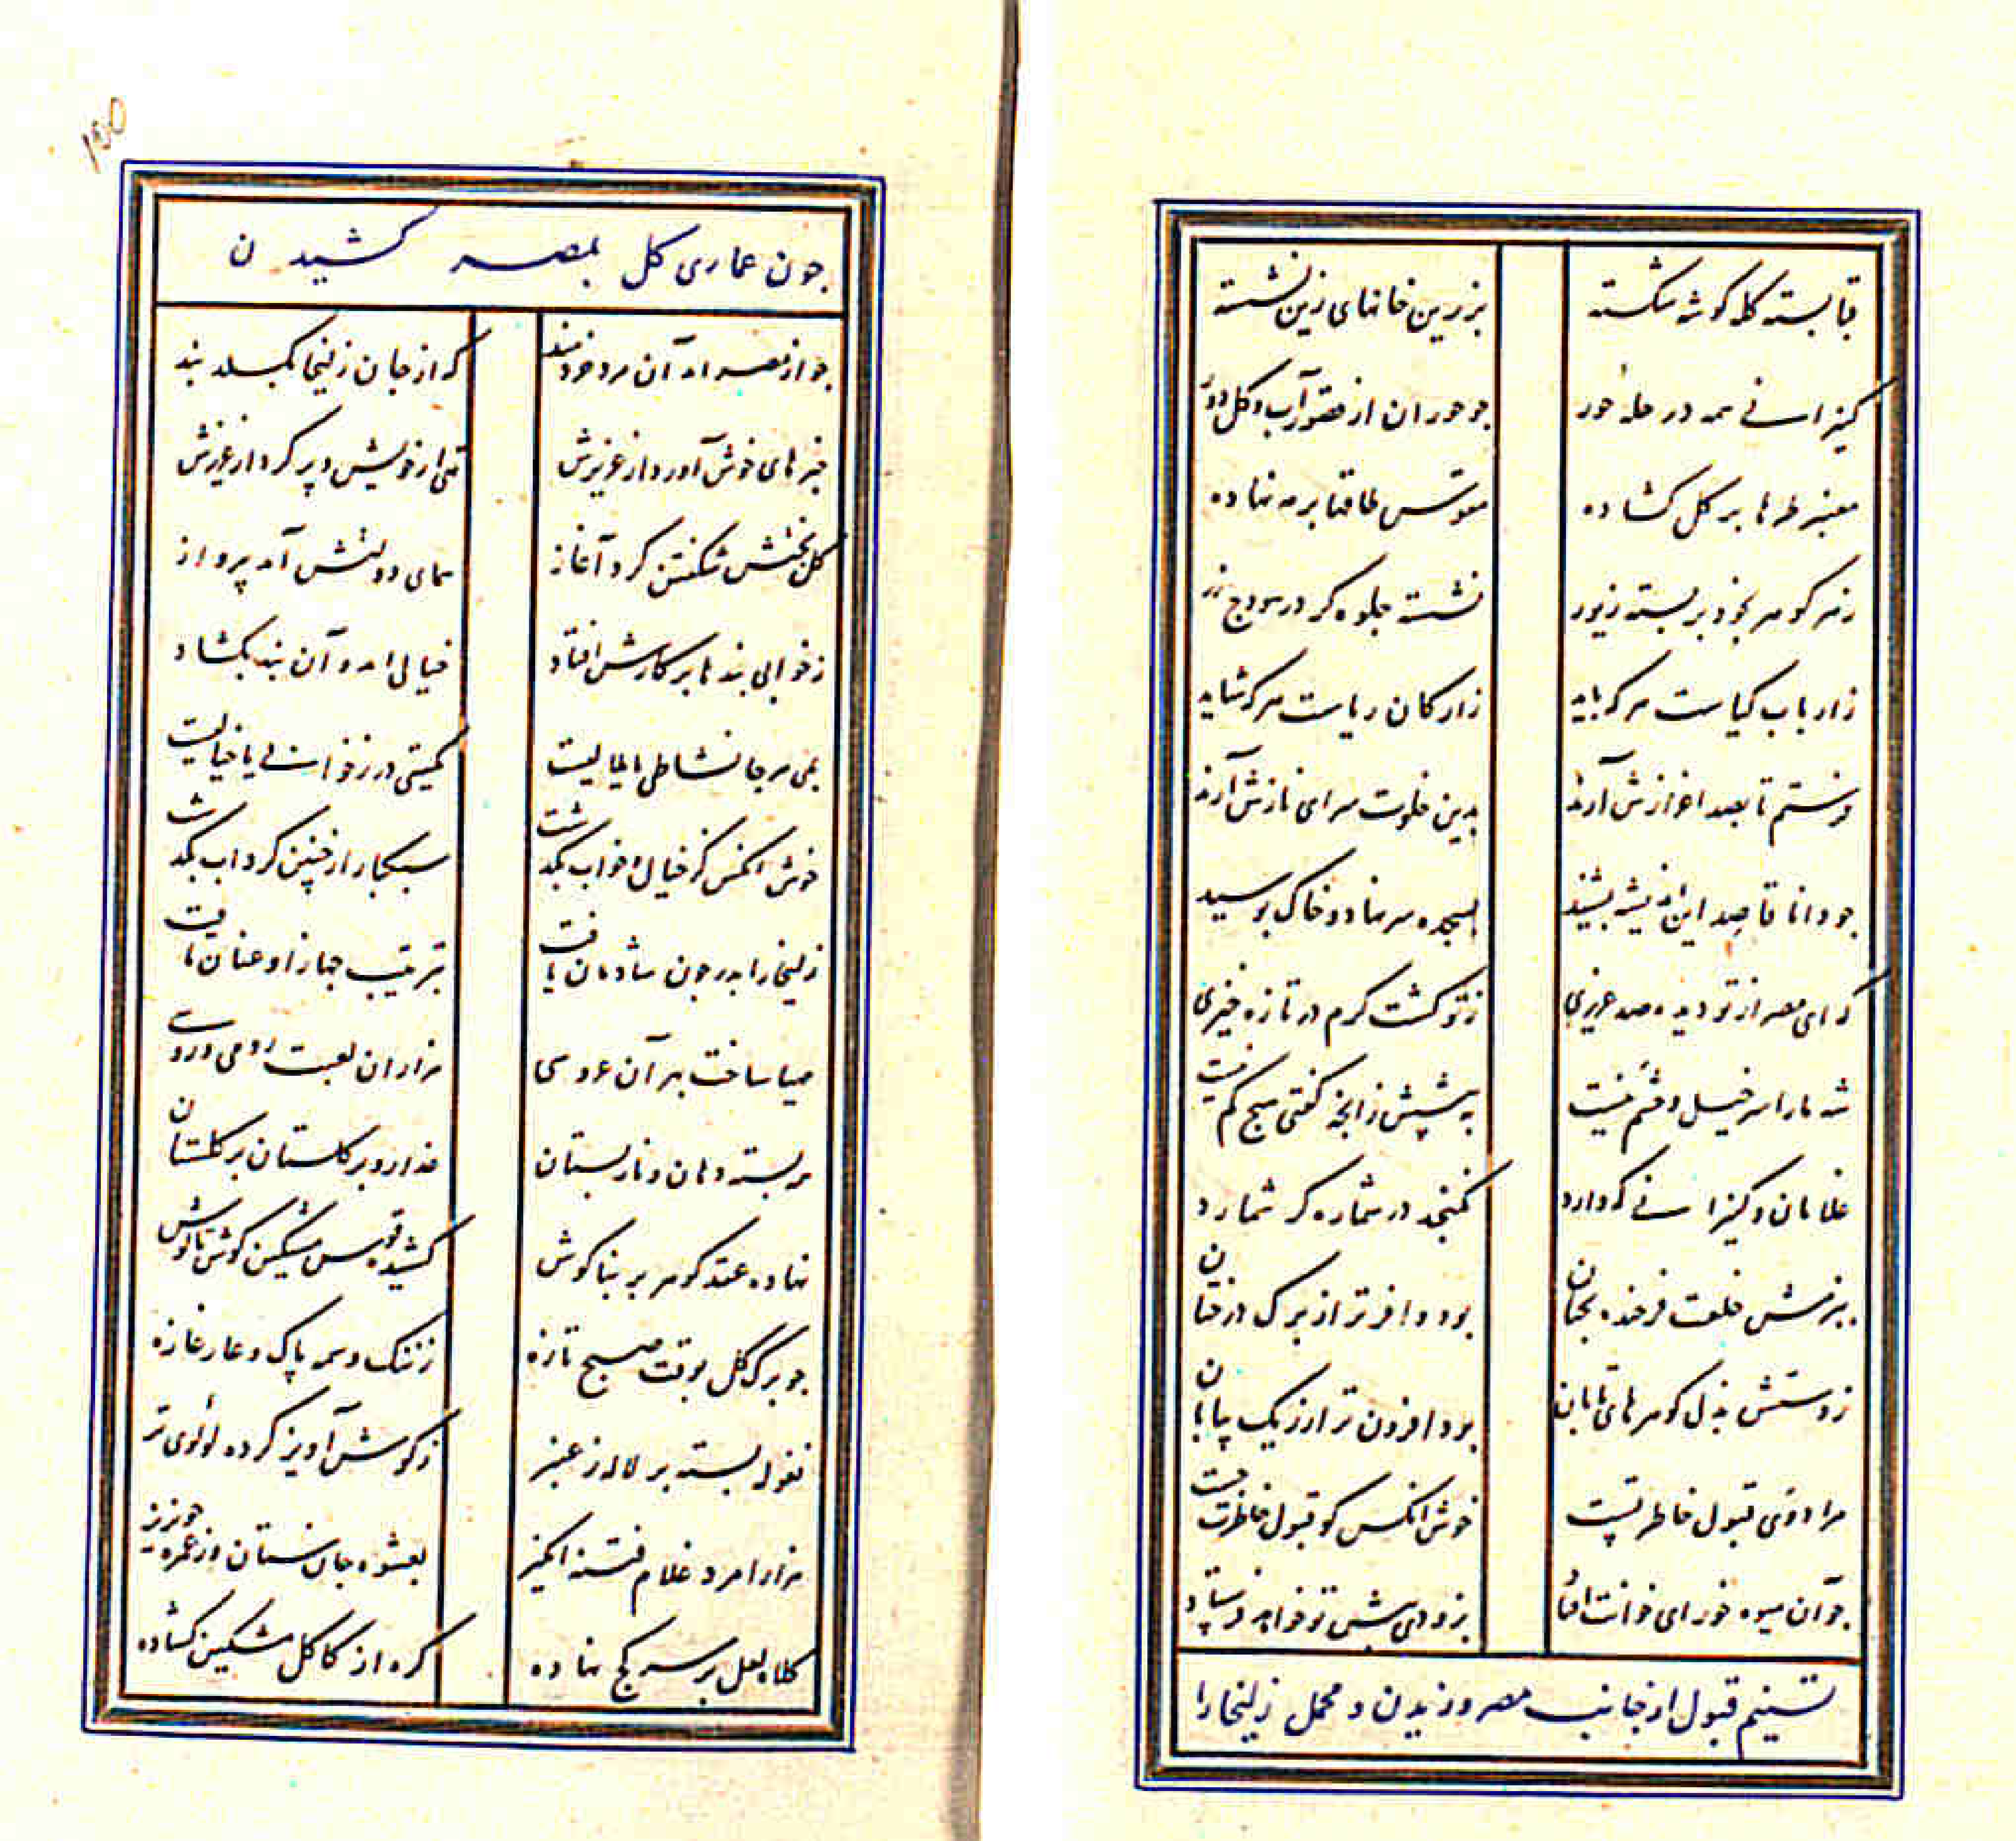 قبا بسته کله کوشه شکسته بزرین خانهای زین نشسته
کنیزانی همه در حله حور جو حوران از قصور آب و کل دور
معنبر طرها بر کل کشاده مقوس طاقها بر مه نهاده
زهر کوهر بخود بر بسته زیور نشسته جلوه کر در هودج زر
زارباب کیاست هر که باید زارکان ریاست هر که شاید
فرستم تا بصد اعزازش آرند بدین خلوت سرای نازش آرند
جو دانا قاصد این اندیشه بشنید بسجده سر نهاد و خاک بوسید
که ای مصر از تو دیده صد عزیزی زتو کشت کرم در تازه خیزی
شه ما را سر خیل و حشم نیست به پیشش زانچه کفتی هیچ کم نیست
غلامان و کنیزانی که دارد نکنجد در شماره کر شمارد
ببزمش خلعت فرخنده بختان بود وافرتر از برک درختان
زدستش بذل کوهرهای تابان بود افزون تر از ریک بیابان
مرادوی قبول خاطر تست خوش آنکس کو قبول خاطرت جست
جو آن میوه خورای خوانت افتاد بزودی پیش تو خواهد فرستاد
تسنیم قبول از جانب مصر وزیدن و محمل زلیخا را
جون عماری کل بمصر کشیدن
جو از مصر آمد آن مرد خردمند که از جان زلیخا بکسلد بند
خبرهای خوش آورد از عزیزش تهی از خویش و پر کرد از عزیزش
کل بختش شکفتن کرد آغاز همای دولتش آمد بپرواز
زخوابی بندها بر کارش افتاد خیالی آمد و آن بند بکشاد
بلی هر جا نشاطی یا ملالیست کیتی در زخوابی یا خیالیست
خوش آنکس کز خیال و خواب بکذشت سبکبار از چنین کرداب بکذشت
زلیخا را پدر جون شادمان یافت بترتیب جهاز او عنان تافت
مهیا ساخت بهر آن عروسی هزاران لعبت رومی و روسی
همه بسته دهان و نار پستان عذار و بر کلستان بر کلستان
نهاده عقد کوهر بر بناکوش کشیده قوس مشکین کوش تا کوش
جو برک کل بوقت صبح تازه زننک وسمه پاک و عار غازه
نغوله بسته بر لاله ز عنبر زکوش آویز کرده لؤلوی تر
هزار امرد غلام فتنه انکیز بعشوه جان ستان وز غمزه خونریز
کلاه لعل بر سر کج نهاده کره از کاکل مشکین کشاده